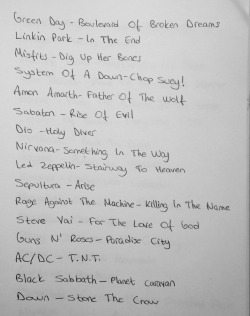 Green Day - Boulevard Of Broken Dreams
Linkin Park - In The End
Misfits - Dig Up Her Bones
System Of A Down - Chop Suey!
Amon Amarth - Father Of The Wolf
Sabaton - Rise Of Evil
Dio - Holy Diver
Nirvana - Something In The Way
Led Zeppelin - Stairway To Heaven
Sepultura - Arise
Rage Against The Machine - Killing In The Name
Steve Vai - For The Love Of God
Guns N' Roses - Paradise City
AC/DC - T.N.T.
Black Sabbath - Planet Caravan
Down - Stone The Crow